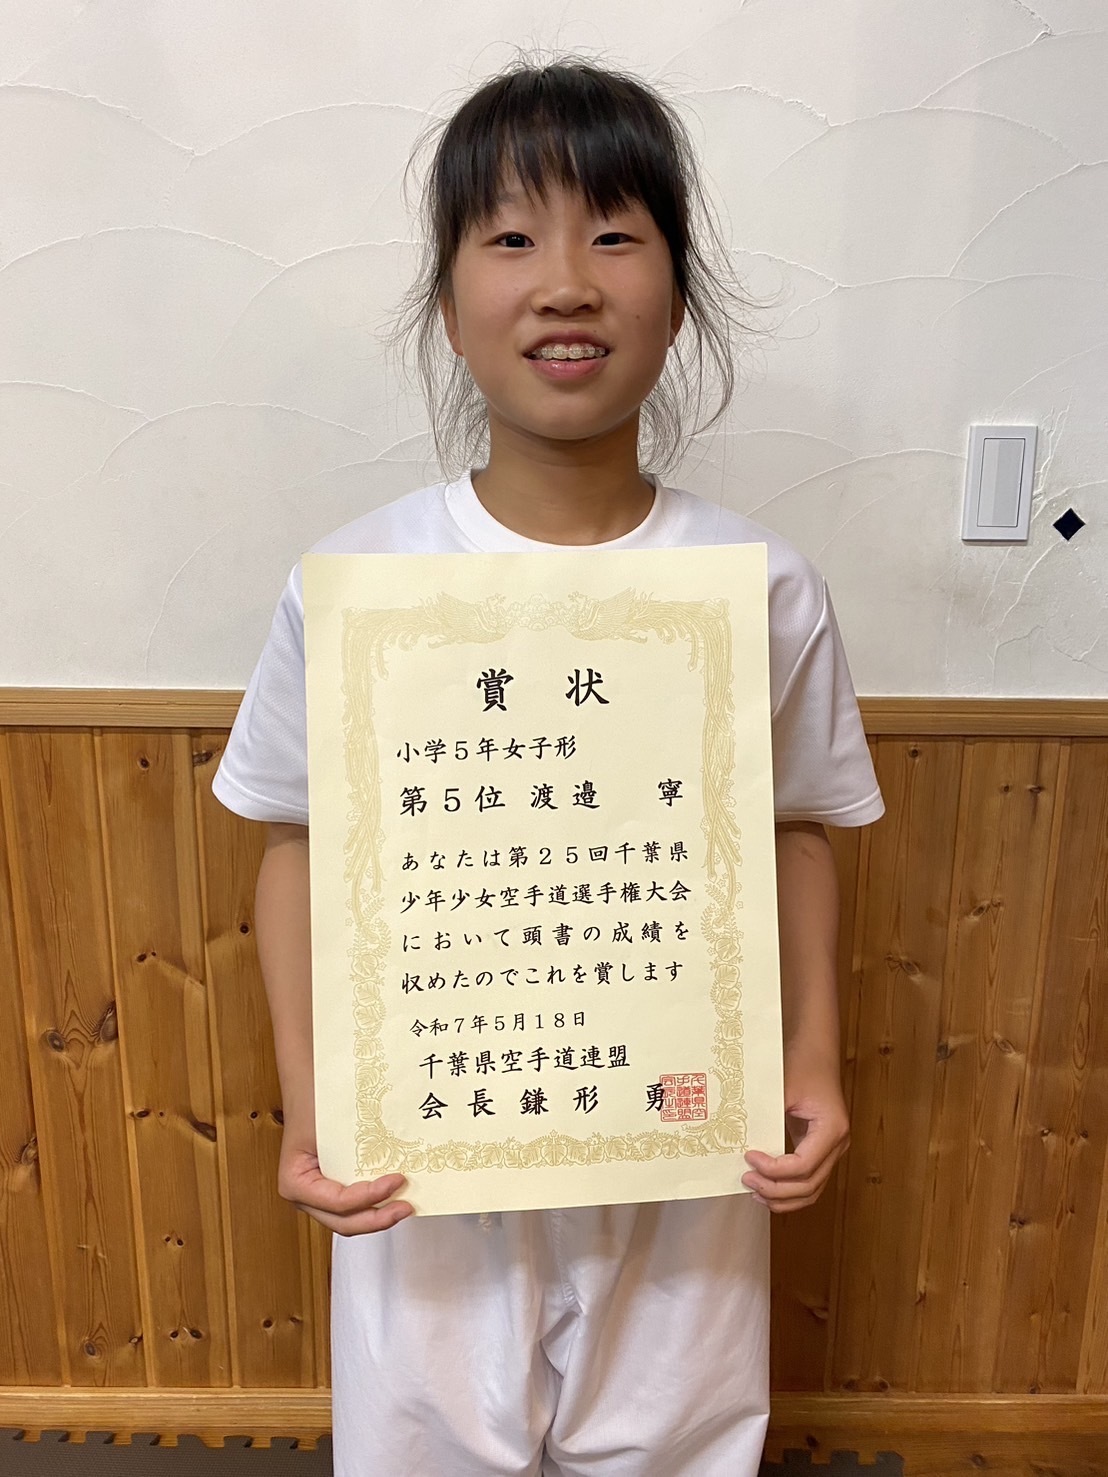 賞状
小学５年女子形
第５位 渡邉 寧
あなたは第２５回千葉県
少年少女空手道選手権大会
において頭書の成績を
収めたのでこれを賞します
令和７年５月１８日
千葉県空手道連盟
会長 鎌形 勇